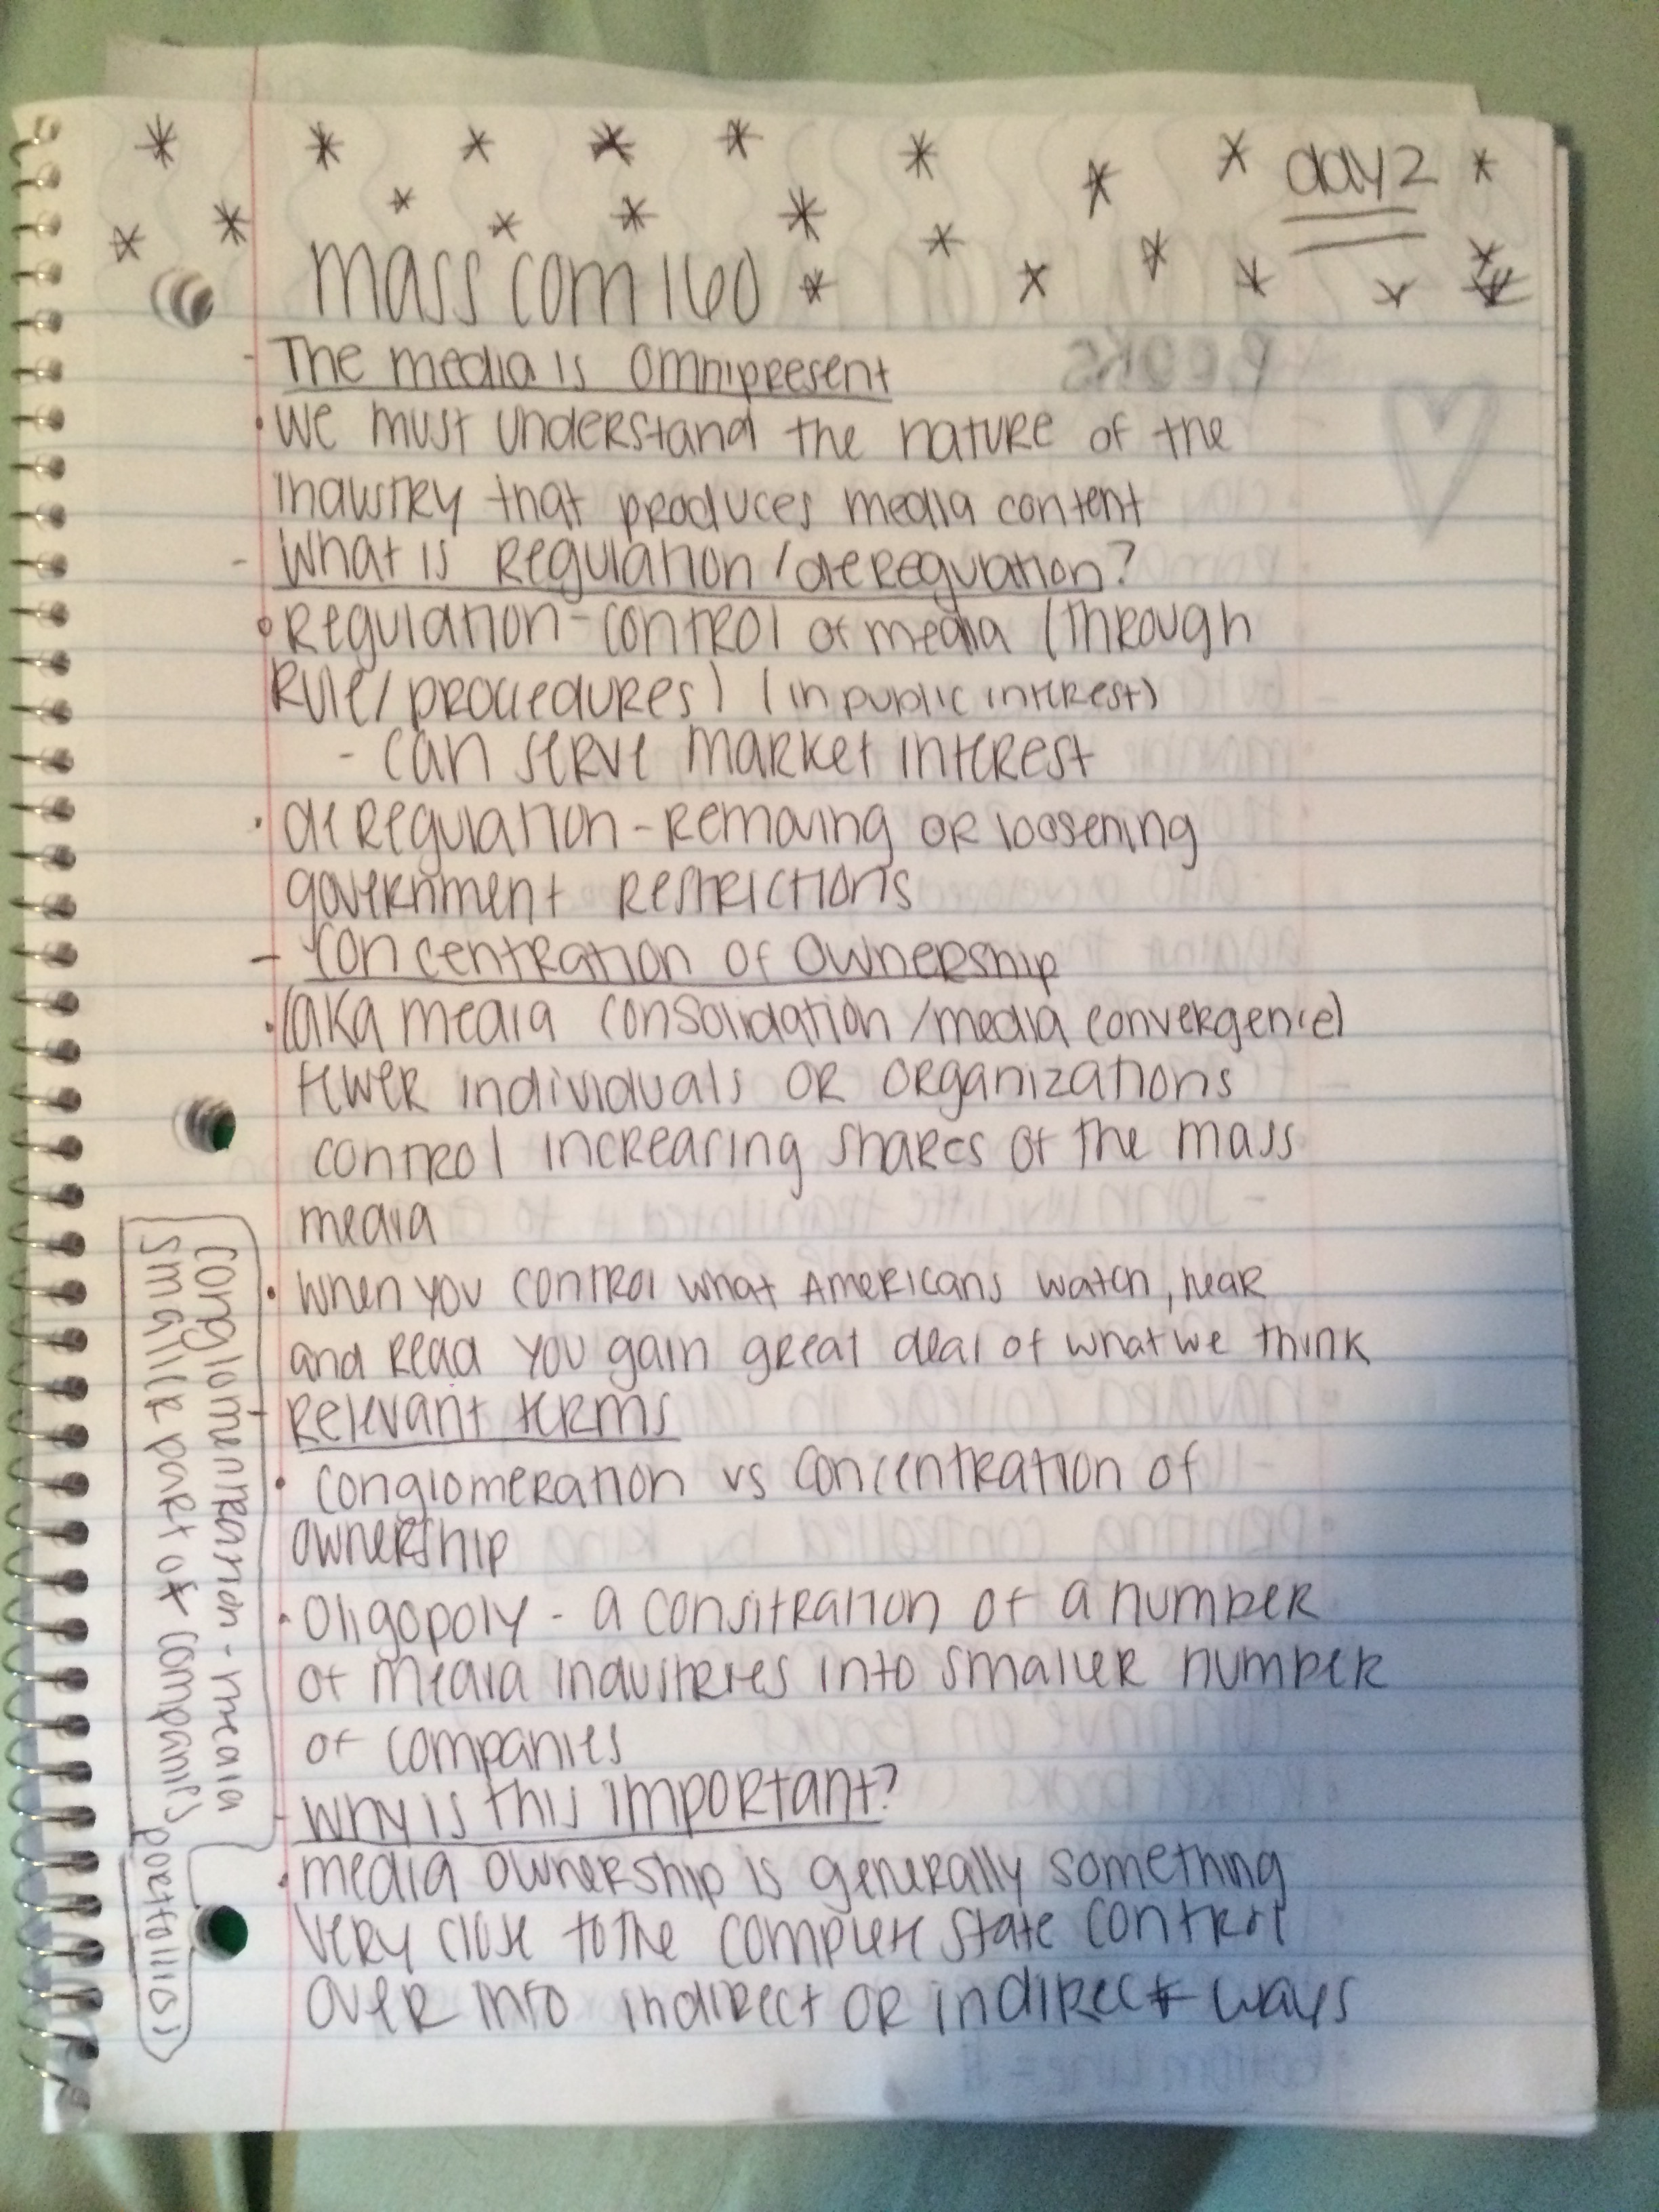 day 2
mass com 160
- The media is omnipresent
• We must understand the nature of the
industry that produces media content
- What is Regulation/deregulation?
• Regulation - control of media (through
Rule/procedures) (in public interest)
- can serve market interest
• deregulation - removing or loosening
government restrictions
- concentration of ownership
• (aka media consolidation/media convergence)
fewer individuals or organizations
control increasing shares of the mass
media
• When you control what Americans watch, hear
and read you gain great deal of what we think
- Relevant terms
• conglomeration vs concentration of
ownership
• Oligopoly - a consitration of a number
of media industries into smaller number
of companies
- Why is this important?
• media ownership is generally something
very close to the complete state control
over info indirect or indirect ways
conglomentration - media
smaller part of companies portfolios)
Books